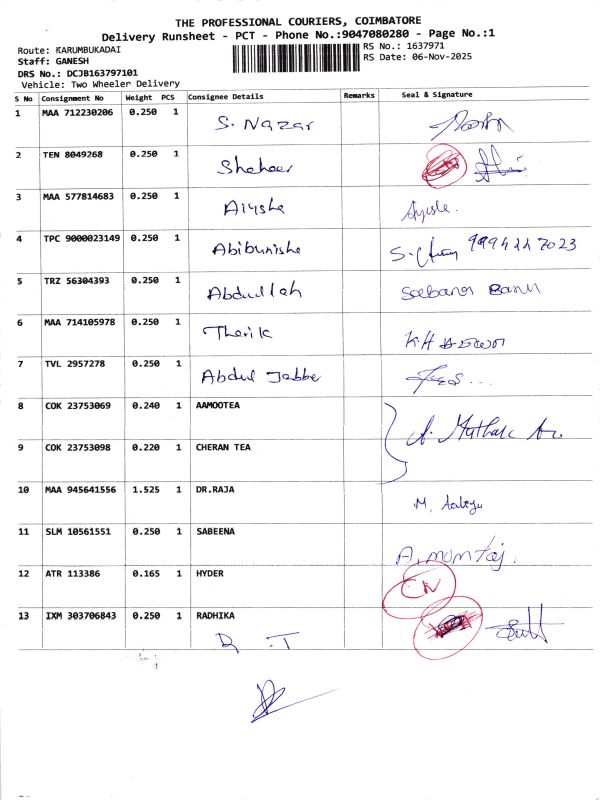 THE PROFESSIONAL COURIERS, COIMBATORE
Delivery Runsheet - PCT - Phone No.:9047080280 - Page No.:1
Route: KARUMBUKADAI RS No.: 1637971
Staff: GANESH RS Date: 06-Nov-2025
DRS No.: DCJB163797101
Vehicle: Two Wheeler Delivery
S No Consignment No Weight PCS Consignee Details Remarks Seal & Signature
1 MAA 712230206 0.250 1 S. Nazar
2 TEN 8049268 0.250 1 Shaheer
3 MAA 577814683 0.250 1 Aiysha Ayisha.
4 TPC 9000023149 0.250 1 Abibunisha 9994227023
5 TRZ 56304393 0.250 1 Abdullah Banu
6 MAA 714105978 0.250 1 Tharik
7 TVL 2957278 0.250 1 Abdul Jabbe
8 COK 23753069 0.240 1 AAMOOTEA
9 COK 23753098 0.220 1 CHERAN TEA
10 MAA 945641556 1.525 1 DR.RAJA
11 SLM 10561551 0.250 1 SABEENA A. mumtaj.
12 ATR 113386 0.165 1 HYDER CN
13 IXM 303706843 0.250 1 RADHIKA